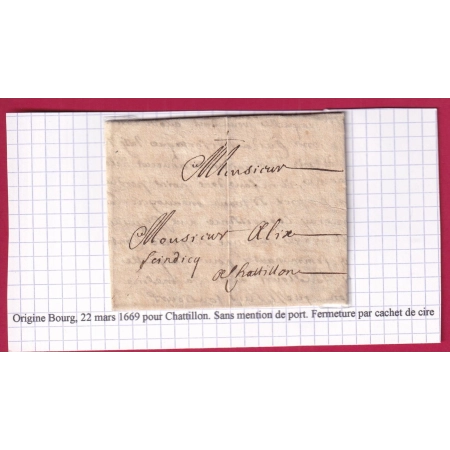 Monsieur
Monsieur Alix
scindicq
A Chattillon
Origine Bourg, 22 mars 1669 pour Chattillon. Sans mention de port. Fermeture par cachet de cire